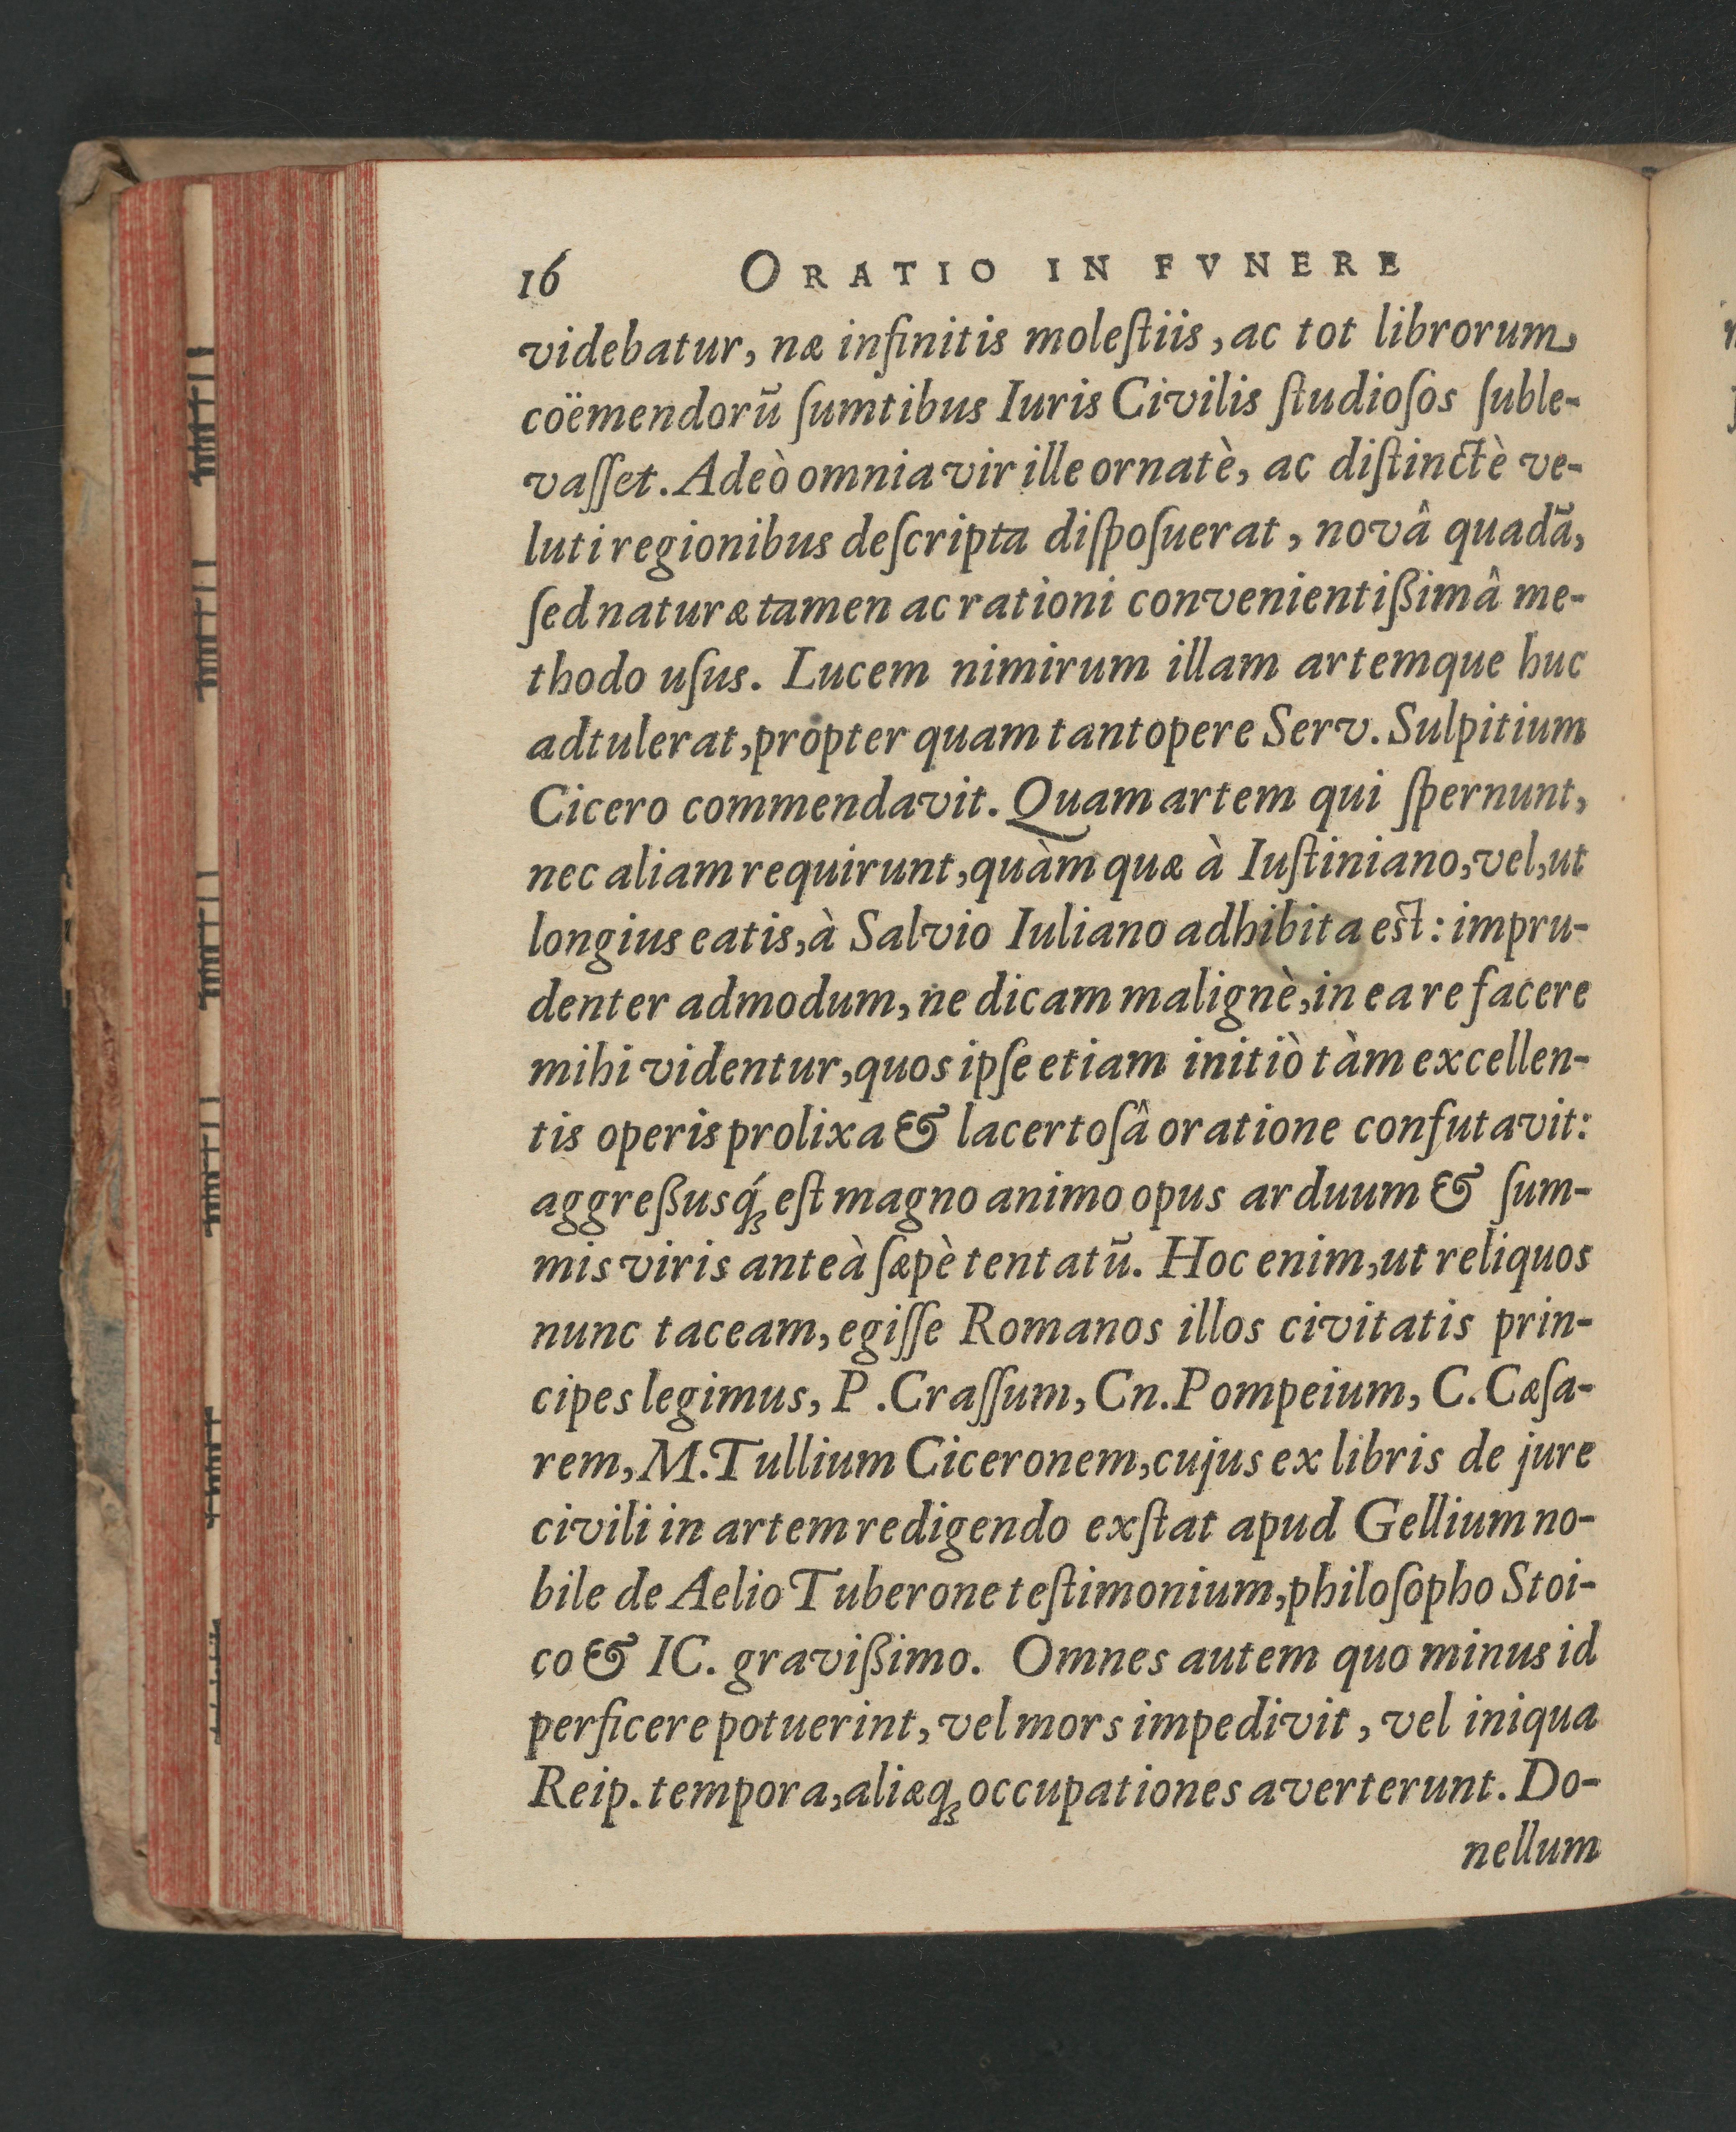 16 ORATIO IN FVNERE
videbatur, næ infinitis moleſtiis, ac tot librorum
coëmendorū ſumtibus Iuris Civilis ſtudioſos ſuble-
vaſſet. Adeò omnia vir ille ornatè, ac diſtinctè ve-
luti regionibus deſcripta diſpoſuerat, novâ quadā,
ſed naturæ tamen ac rationi convenientißimâ me-
thodo uſus. Lucem nimirum illam artemque huc
adtulerat, propter quam tantopere Serv. Sulpitium
Cicero commendavit. Quam artem qui ſpernunt,
nec aliam requirunt, quàm quæ à Iuſtiniano, vel, ut
longius eatis, à Salvio Iuliano adhibita est: impru-
denter admodum, ne dicam malignè, in ea re facere
mihi videntur, quos ipſe etiam initiò tàm excellen-
tis operis prolixa & lacertoſâ oratione confutavit:
aggreßusq́ꝫ eſt magno animo opus arduum & ſum-
mis viris anteà ſæpè tentatū. Hoc enim, ut reliquos
nunc taceam, egiſſe Romanos illos civitatis prin-
cipes legimus, P. Craſſum, Cn. Pompeium, C. Cæſa-
rem, M. Tullium Ciceronem, cujus ex libris de jure
civili in artem redigendo exſtat apud Gellium no-
bile de Aelio Tuberone teſtimonium, philoſopho Stoi-
co & IC. gravißimo. Omnes autem quo minus id
perficere potuerint, vel mors impedivit, vel iniqua
Reip. tempora, aliæqꝫ occupationes averterunt. Do-
nellum